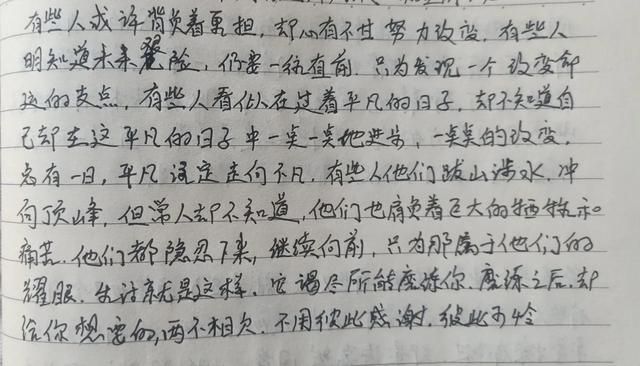 有些人或许背负着重担，却心有不甘努力改变，有些人
明知道未来艰险，仍要一往直前，只为发现一个改变命
运的支点，有些人看似在过着平凡的日子，却不知道自
己却在这平凡的日子中一点一点地进步，一点点的改变，
总有一日，平凡注定走向不凡，有些人他们跋山涉水，冲
向顶峰，但常人却不知道，他们也肩负着巨大的牺牲和
痛苦，他们都隐忍下来，继续向前，只为那属于他们的
耀眼，生活亦是这样，它竭尽所能磨练你，磨练之后，却
给你想要的，两不相欠，不用彼此感谢，彼此可怜